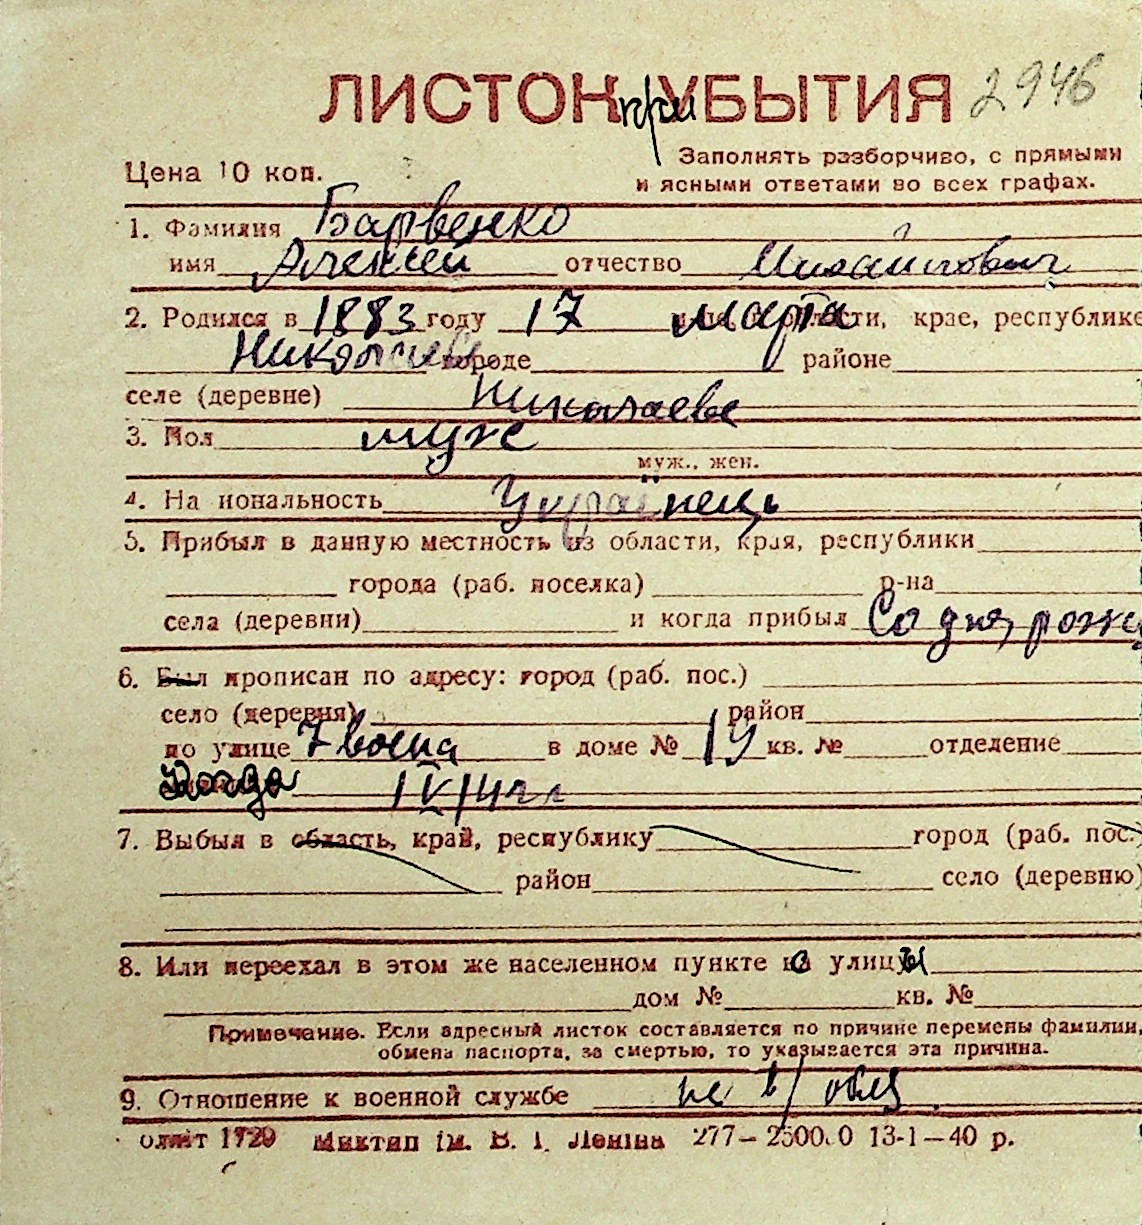 ЛИСТОК при УБЫТИЯ 2946
Цена 10 коп.
Заполнять разборчиво, с прямыми
и ясными ответами во всех графах.
1. Фамилия Барвенко
имя Алексей отчество Михайлович
2. Родился в 1883 году 17 марта области, крае, республике
Николаев городе районе
селе (деревне) Николаеве
3. Пол муж
муж., жен.
4. На иональность Українець
5. Прибыл в данную местность из области, края, республики
города (раб. поселка) р-на
села (деревни) и когда прибыл Со дня рожд
6. Был прописан по адресу: город (раб. пос.)
село (деревня) район
по улице 7 Воена в доме № 19 кв. № отделение
Когда 1 IV 14
7. Выбыл в область, край, республику город (раб. пос.)
район село (деревню)
8. Или переехал в этом же населенном пункте с улицы
дом № кв. №
Примечание. Если адресный листок составляется по причине перемены фамилии,
обмена паспорта, за смертью, то указывается эта причина.
9. Отношение к военной службе не в/обяз.
олит 1720 Миктип ім. В. І. Леніна 277—25000 13-1—40 р.